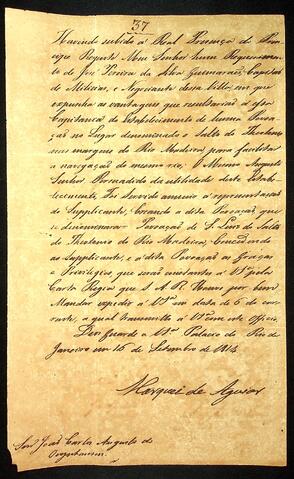 37
Havendo subido á Real Prezença do Prin-
cipe Regente Meu Senhor hum Requerimen-
to de José Pereira da Silva Guimaraens, Capitaõ
de Milicias, e Negociante dessa Villa, em que
expunha as vantagens que resultariaõ a essa
Capitania do Estabelecimento de huma Povoa-
çaõ no Lugar denominado o Salto do Theotonio
nas margens do Rio Madeira para facilitar
a navegaçaõ do mesmo rio, O Mesmo Augusto
Senhor Persuadido da utilidade deste Estabe-
lecimento, Foi Servido annuir á representaçaõ
do Supplicante, Creando a dita Povoaçaõ, que
se denominará Povoaçaõ de S. Luiz do Salto
do Theotonio do Rio Madeira, Concedendo
ao Supplicante, e á dita Povoaçaõ as Graças
e Privilegios que seraõ constantes a V.Sª pela
Carta Regia que S. A. R. Houve por bem
Mandar expedir a V.Sª em data de 6 do cor-
rente, a qual transmitto a V.Sª com este Officio.
Deos guarde a V.Sª Palacio do Rio de
Janeiro em 15 de Setembro de 1814
Marquez de Aguiar
Snr. Joaõ Carlos Augusto de
Oeynhausen.